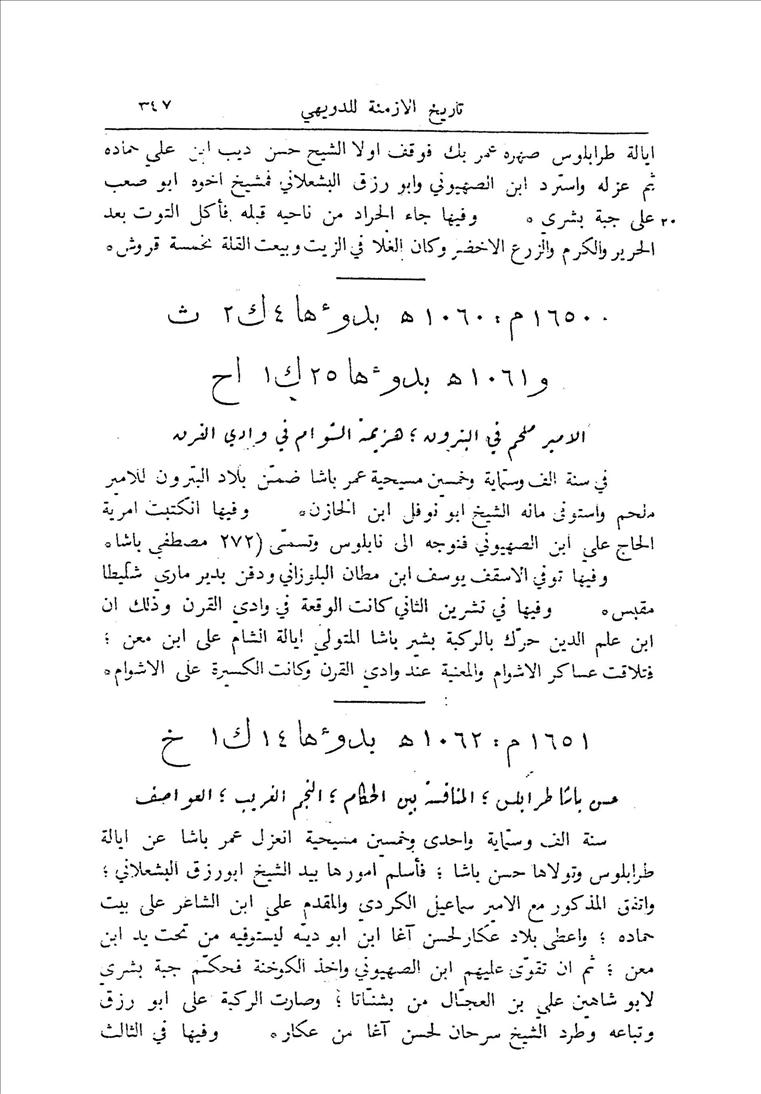 تاريخ الازمنة للدويهي ٣٤٧
ايالة طرابلوس صهره عمر بك فوقف اولا الشيخ حسن ديب ابن علي حماده
ثم عزله واسترد ابن الصهيوني وابو رزق البشعلاني فمشيخ اخوه ابو صعب
على جبة بشري ٥ وفيها جاء الجراد من ناحيه قبله فأكل التوت بعد ٢٠
الحرير والكرم والزرع الاخضر وكان الغلا في الزيت وبيعت القلة بخمسة قروش ٥
١٦٥٠ م : ١٠٦٠ ه بدوءها ٤ ك ٢ ث
و ١٠٦١ ه بدوءها ٢٥ ك ١ اح
الامير ملحم في البترون ؛ هزيمة الشوام في وادي القرن
في سنة الف وستماية وخمسين مسيحية عمر باشا ضمّن بلاد البترون للامير
ملحم واستوفى ماله الشيخ ابو نوفل ابن الخازن ٥ وفيها انكتبت امرية
الحاج علي ابن الصهيوني فتوجه الى نابلوس وتسمّى (٢٧٢ مصطفى باشا ٥
وفيها توفي الاسقف يوسف ابن مطان البلوزاني ودفن بدير ماري شليطا
مقبس ٥ وفيها في تشرين الثاني كانت الوقعة في وادي القرن وذلك ان
ابن علم الدين حرّك بالركبة بشير باشا المتولي ايالة الشام على ابن معن ؛
فتلاقت عساكر الاشوام والمعنية عند وادي القرن وكانت الكسيرة على الاشوام ٥
١٦٥١ م : ١٠٦٢ ه بدوءها ١٤ ك ١ خ
حسن باشا طرابلس ؛ المنافسة بين الحكام ؛ النجم الغريب ؛ العواصف
سنة الف وستماية واحدى وخمسين مسيحية انعزل عمر باشا عن ايالة
طرابلوس وتولاها حسن باشا ؛ فأسلم امورها بيد الشيخ ابو رزق البشعلاني ؛
واتفق المذكور مع الامير سماعيل الكردي والمقدم علي ابن الشاعر على بيت
حماده ؛ واعطى بلاد عكار لحسن آغا ابن ابو دينه ليستوفيه من تحت يد ابن
معن ؛ ثم ان تقوّى عليهم ابن الصهيوني واخذ الكوخنة فحكّم جبة بشري
لابو شاهين علي بن العجّال من بشنّاتا ؛ وصارت الركبة على ابو رزق
وتباعه وطرد الشيخ سرحان لحسن آغا من عكار ٥ وفيها في الثالث